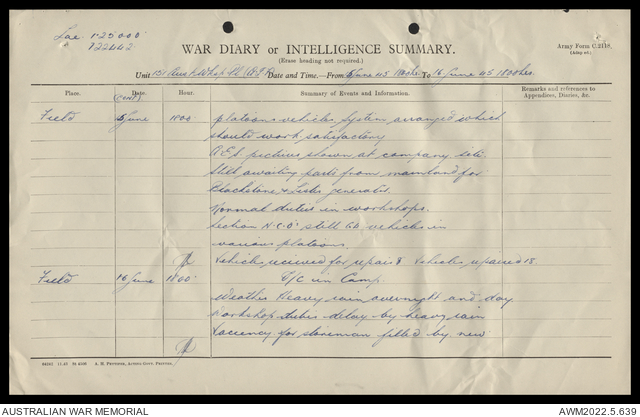 Lae 1:25000
722442
WAR DIARY or INTELLIGENCE SUMMARY.
(Erase heading not required.)
Army Form C.2118.
Unit 151 Aust Date and Time—From 1800hrs To 16 June 45 1800hrs.
Place. Date. Hour. Summary of Events and Information. Remarks and references to Appendices, Diaries, &c.
(cont)
Field June 1800 platoons vehicles. System arranged which
should work satisfactory
A.E.S pictures shown at company site.
Still awaiting parts from mainland for
Blackstone & Lister generator.
Normal duties in workshops.
Section N.C.O's still vehicles in
various platoons.
Vehicles received for repair 8 Vehicles repaired 18.
Field 16 June 1800 in Camp.
Weather Heavy rain overnight and day
Workshop duties delay by heavy rain
Vacancy for storeman filled by new
A. H. Pettifer, Acting Govt. Printer.
AUSTRALIAN WAR MEMORIAL
AWM2022.5.639